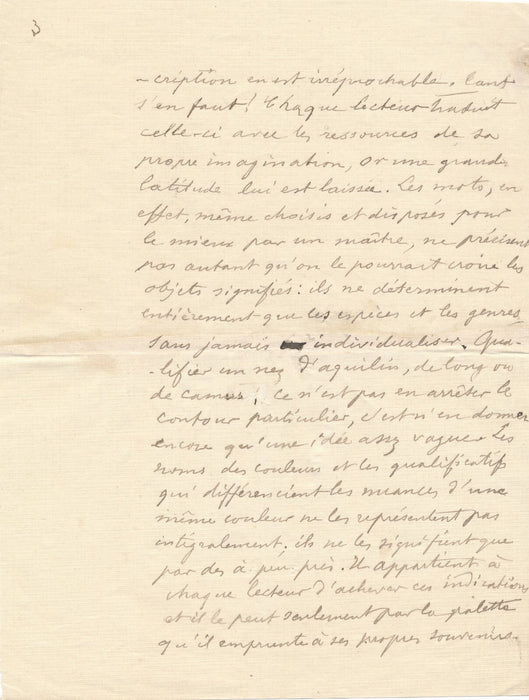 3
-cription en est irréprochable. tant
s'en faut! Chaque lecteur traduit
celle-ci avec les ressources de sa
propre imagination, or une grande
latitude lui est laissée. Les mots, en
effet, même choisis et disposés pour
le mieux par un maître, ne précisent
pas autant qu'on le pourrait croire les
objets signifiés: ils ne déterminent
entièrement que les espèces et les genres
sans jamais individualiser. Qua-
-lifier un nez d'aquilin, de long ou
de camus, ce n'est pas en arrêter le
contour particulier, c'est n'en donner
encore qu'une idée assez vague. Les
noms des couleurs et les qualificatifs
qui différencient les nuances d'une
même couleur ne les représentent pas
intégralement. ils ne les signifient que
par des à peu près. Il appartient à
chaque lecteur d'achever ces indications
et il le peut seulement par la palette
qu'il emprunte à ses propres souvenirs.